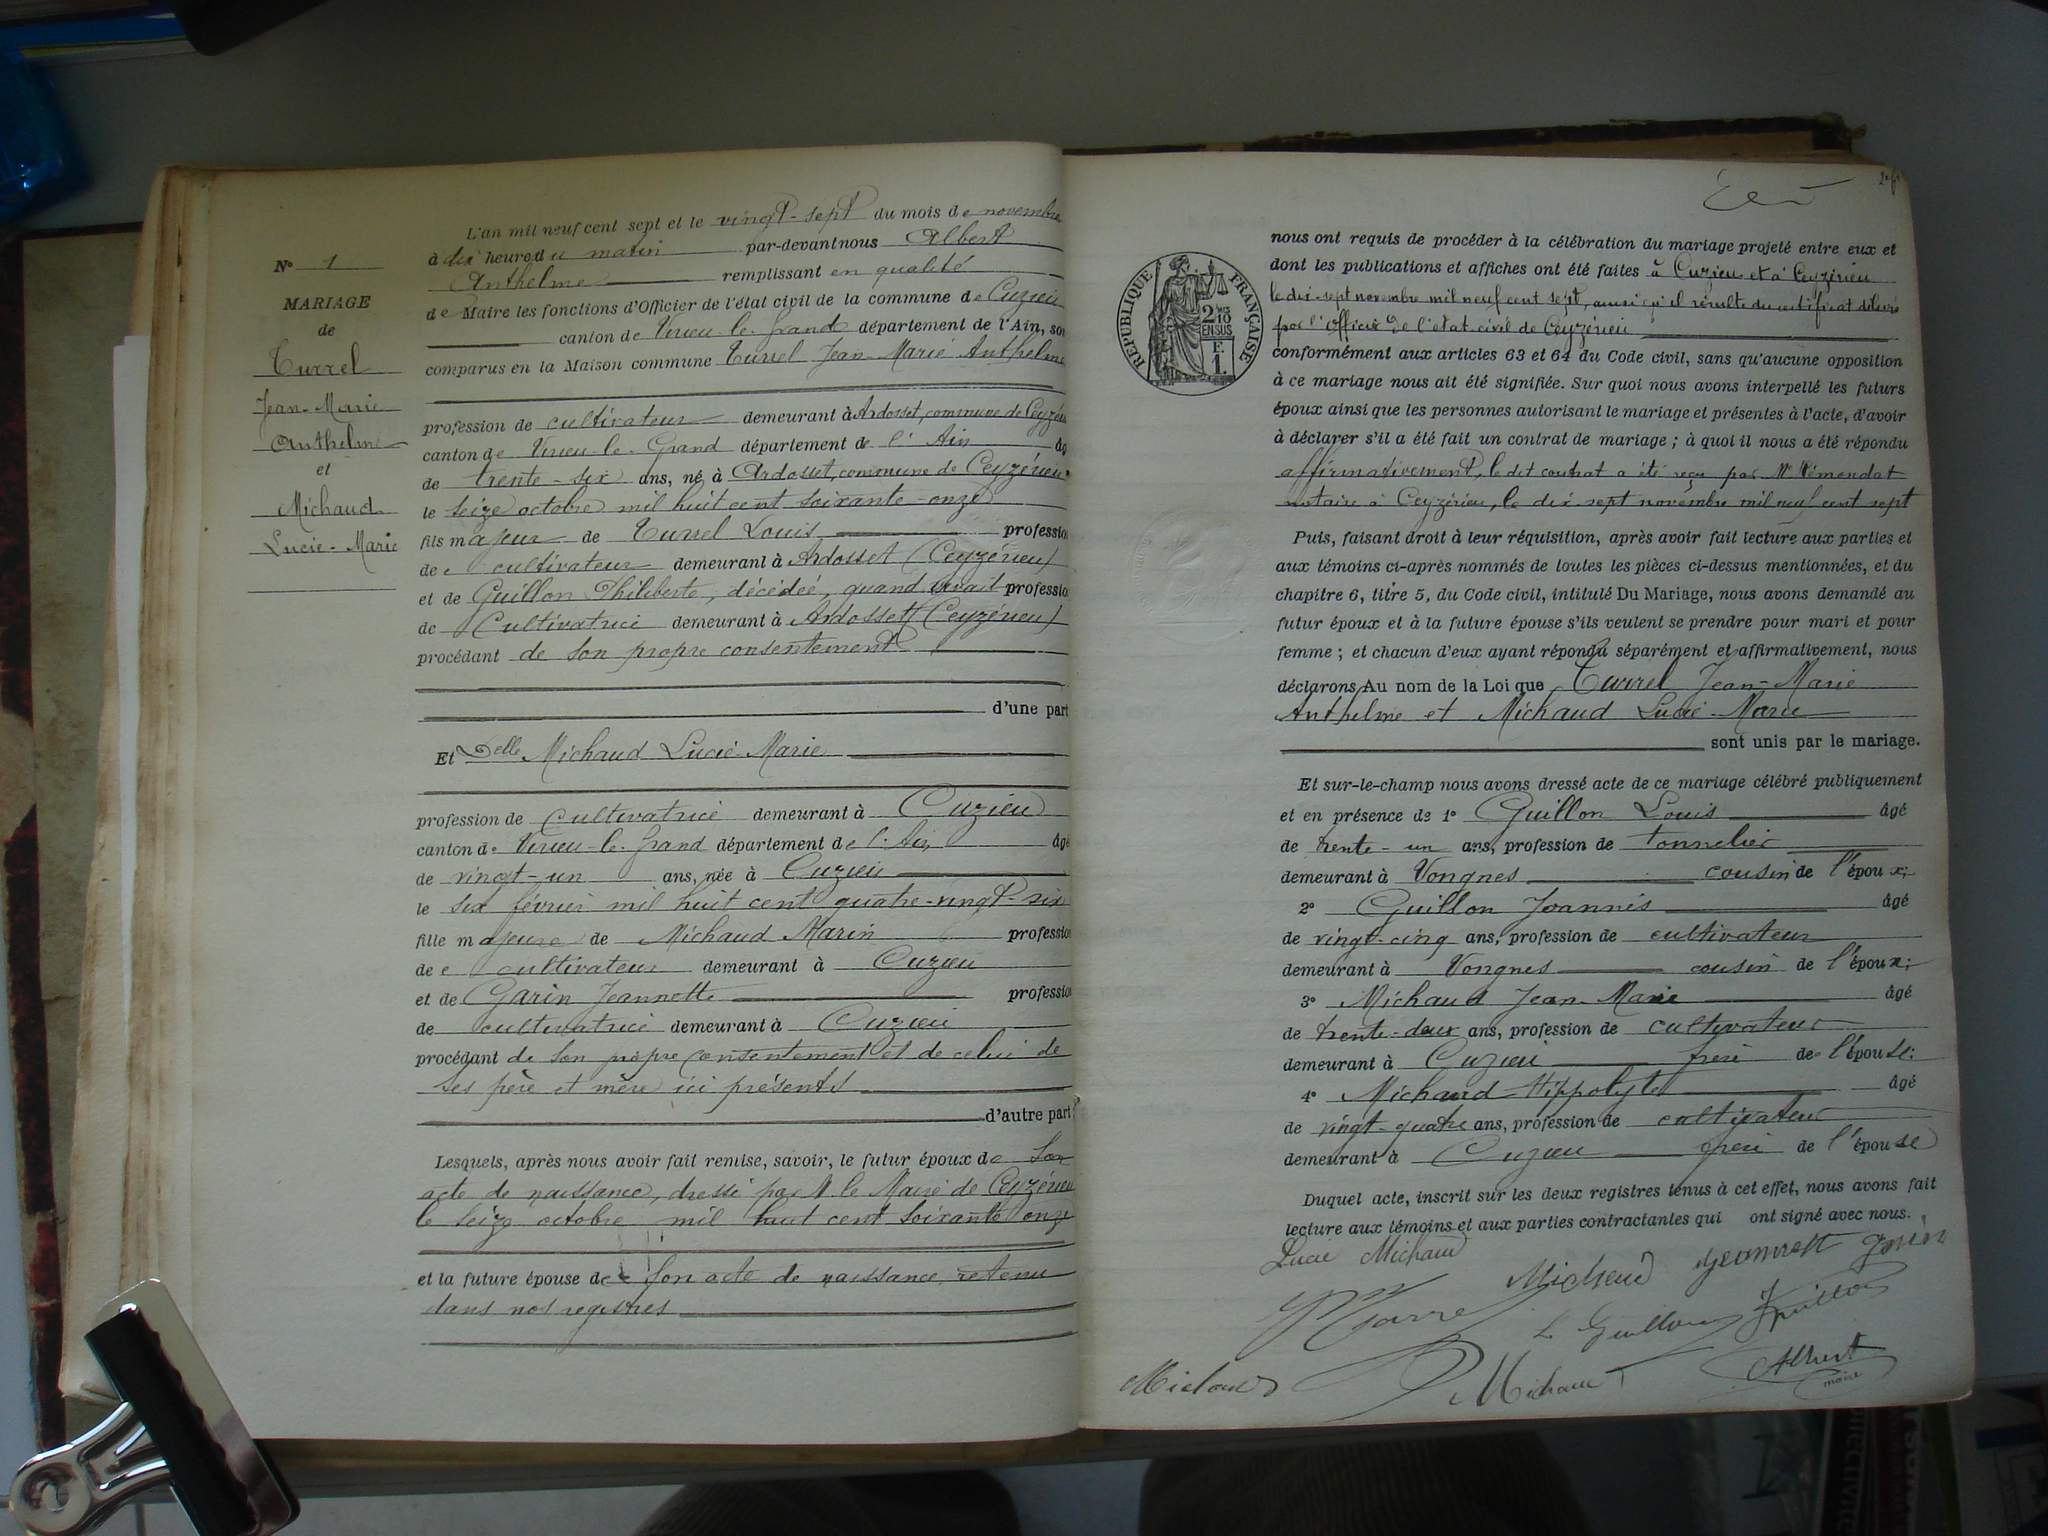 N° 1
MARIAGE
de
Turrel
Jean-Marie
Anthelme
et
Michaud
Lucie-Marie
L'an mil neuf cent sept et le vingt-sept du mois de novembre
à dix heures du matin par-devant nous Albert
Anthelme remplissant en qualité
de Maire les fonctions d'Officier de l'état civil de la commune de Cuzieu
canton de Virieu-le-Grand département de l'Ain, sont
comparus en la Maison commune Turrel Jean-Marie Anthelme
profession de cultivateur demeurant à Ardosset, commune de Ceyzérieu
canton de Virieu-le-Grand département de l'Ain âgé
de trente-six ans, né à Ardosset, commune de Ceyzérieu
le seize octobre mil huit cent soixante-onze
fils majeur de Turrel Louis profession
de cultivateur demeurant à Ardosset (Ceyzérieu)
et de Guillon Philiberte, décédée, quand vivait profession
de Cultivatrice demeurant à Ardosset (Ceyzérieu)
procédant de son propre consentement
d'une part
Et Delle Michaud Lucie-Marie
profession de cultivatrice demeurant à Cuzieu
canton de Virieu-le-Grand département de l'Ain âgé
de vingt-un ans, née à Cuzieu
le six février mil huit cent quatre-vingt-six
fille majeure de Michaud Marin profession
de cultivateur demeurant à Cuzieu
et de Garin Jeannette profession
de cultivatrice demeurant à Cuzieu
procédant de son propre consentement et de celui de
ses père et mère ici présents
d'autre part
Lesquels, après nous avoir fait remise, savoir, le futur époux de son
acte de naissance, dressé par M. le Maire de Ceyzérieu
le seize octobre mil huit cent soixante onze
et la future épouse de son acte de naissance retenu
dans nos registres
RÉPUBLIQUE FRANÇAISE
2/10 EN SUS
F.
1.
nous ont requis de procéder à la célébration du mariage projeté entre eux et
dont les publications et affiches ont été faites à Cuzieu et à Ceyzérieu
le dix-sept novembre mil neuf cent sept, ainsi qu'il résulte du certificat délivré
par l'officier de l'état-civil de Ceyzérieu
conformément aux articles 63 et 64 du Code civil, sans qu'aucune opposition
à ce mariage nous ait été signifiée. Sur quoi nous avons interpellé les futurs
époux ainsi que les personnes autorisant le mariage et présentes à l'acte, d'avoir
à déclarer s'il a été fait un contrat de mariage ; à quoi il nous a été répondu
affirmativement, le dit contrat a été reçu par Me
notaire à Ceyzérieu, le dix-sept novembre mil neuf cent sept
Puis, faisant droit à leur réquisition, après avoir fait lecture aux parties et
aux témoins ci-après nommés de toutes les pièces ci-dessus mentionnées, et du
chapitre 6, titre 5, du Code civil, intitulé Du Mariage, nous avons demandé au
futur époux et à la future épouse s'ils veulent se prendre pour mari et pour
femme ; et chacun d'eux ayant répondu séparément et affirmativement, nous
déclarons Au nom de la Loi que Turrel Jean-Marie
Anthelme et Michaud Lucie-Marie
sont unis par le mariage.
Et sur-le-champ nous avons dressé acte de ce mariage célébré publiquement
et en présence de 1° Guillon Louis âgé
de trente-un ans, profession de tonnelier
demeurant à Vongnes cousin de l'époux;
2° Guillon Joannès âgé
de vingt-cinq ans, profession de cultivateur
demeurant à Vongnes cousin de l'époux;
3° Michaud Jean-Marie âgé
de trente-deux ans, profession de cultivateur
demeurant à Cuzieu frère de l'épouse;
4° Michaud Hippolyte âgé
de vingt-quatre ans, profession de cultivateur
demeurant à Cuzieu frère de l'épouse
Duquel acte, inscrit sur les deux registres tenus à cet effet, nous avons fait
lecture aux témoins et aux parties contractantes qui ont signé avec nous.
Lucie Michaud
Michaud
L Guillon
Michaud
Albert
maire